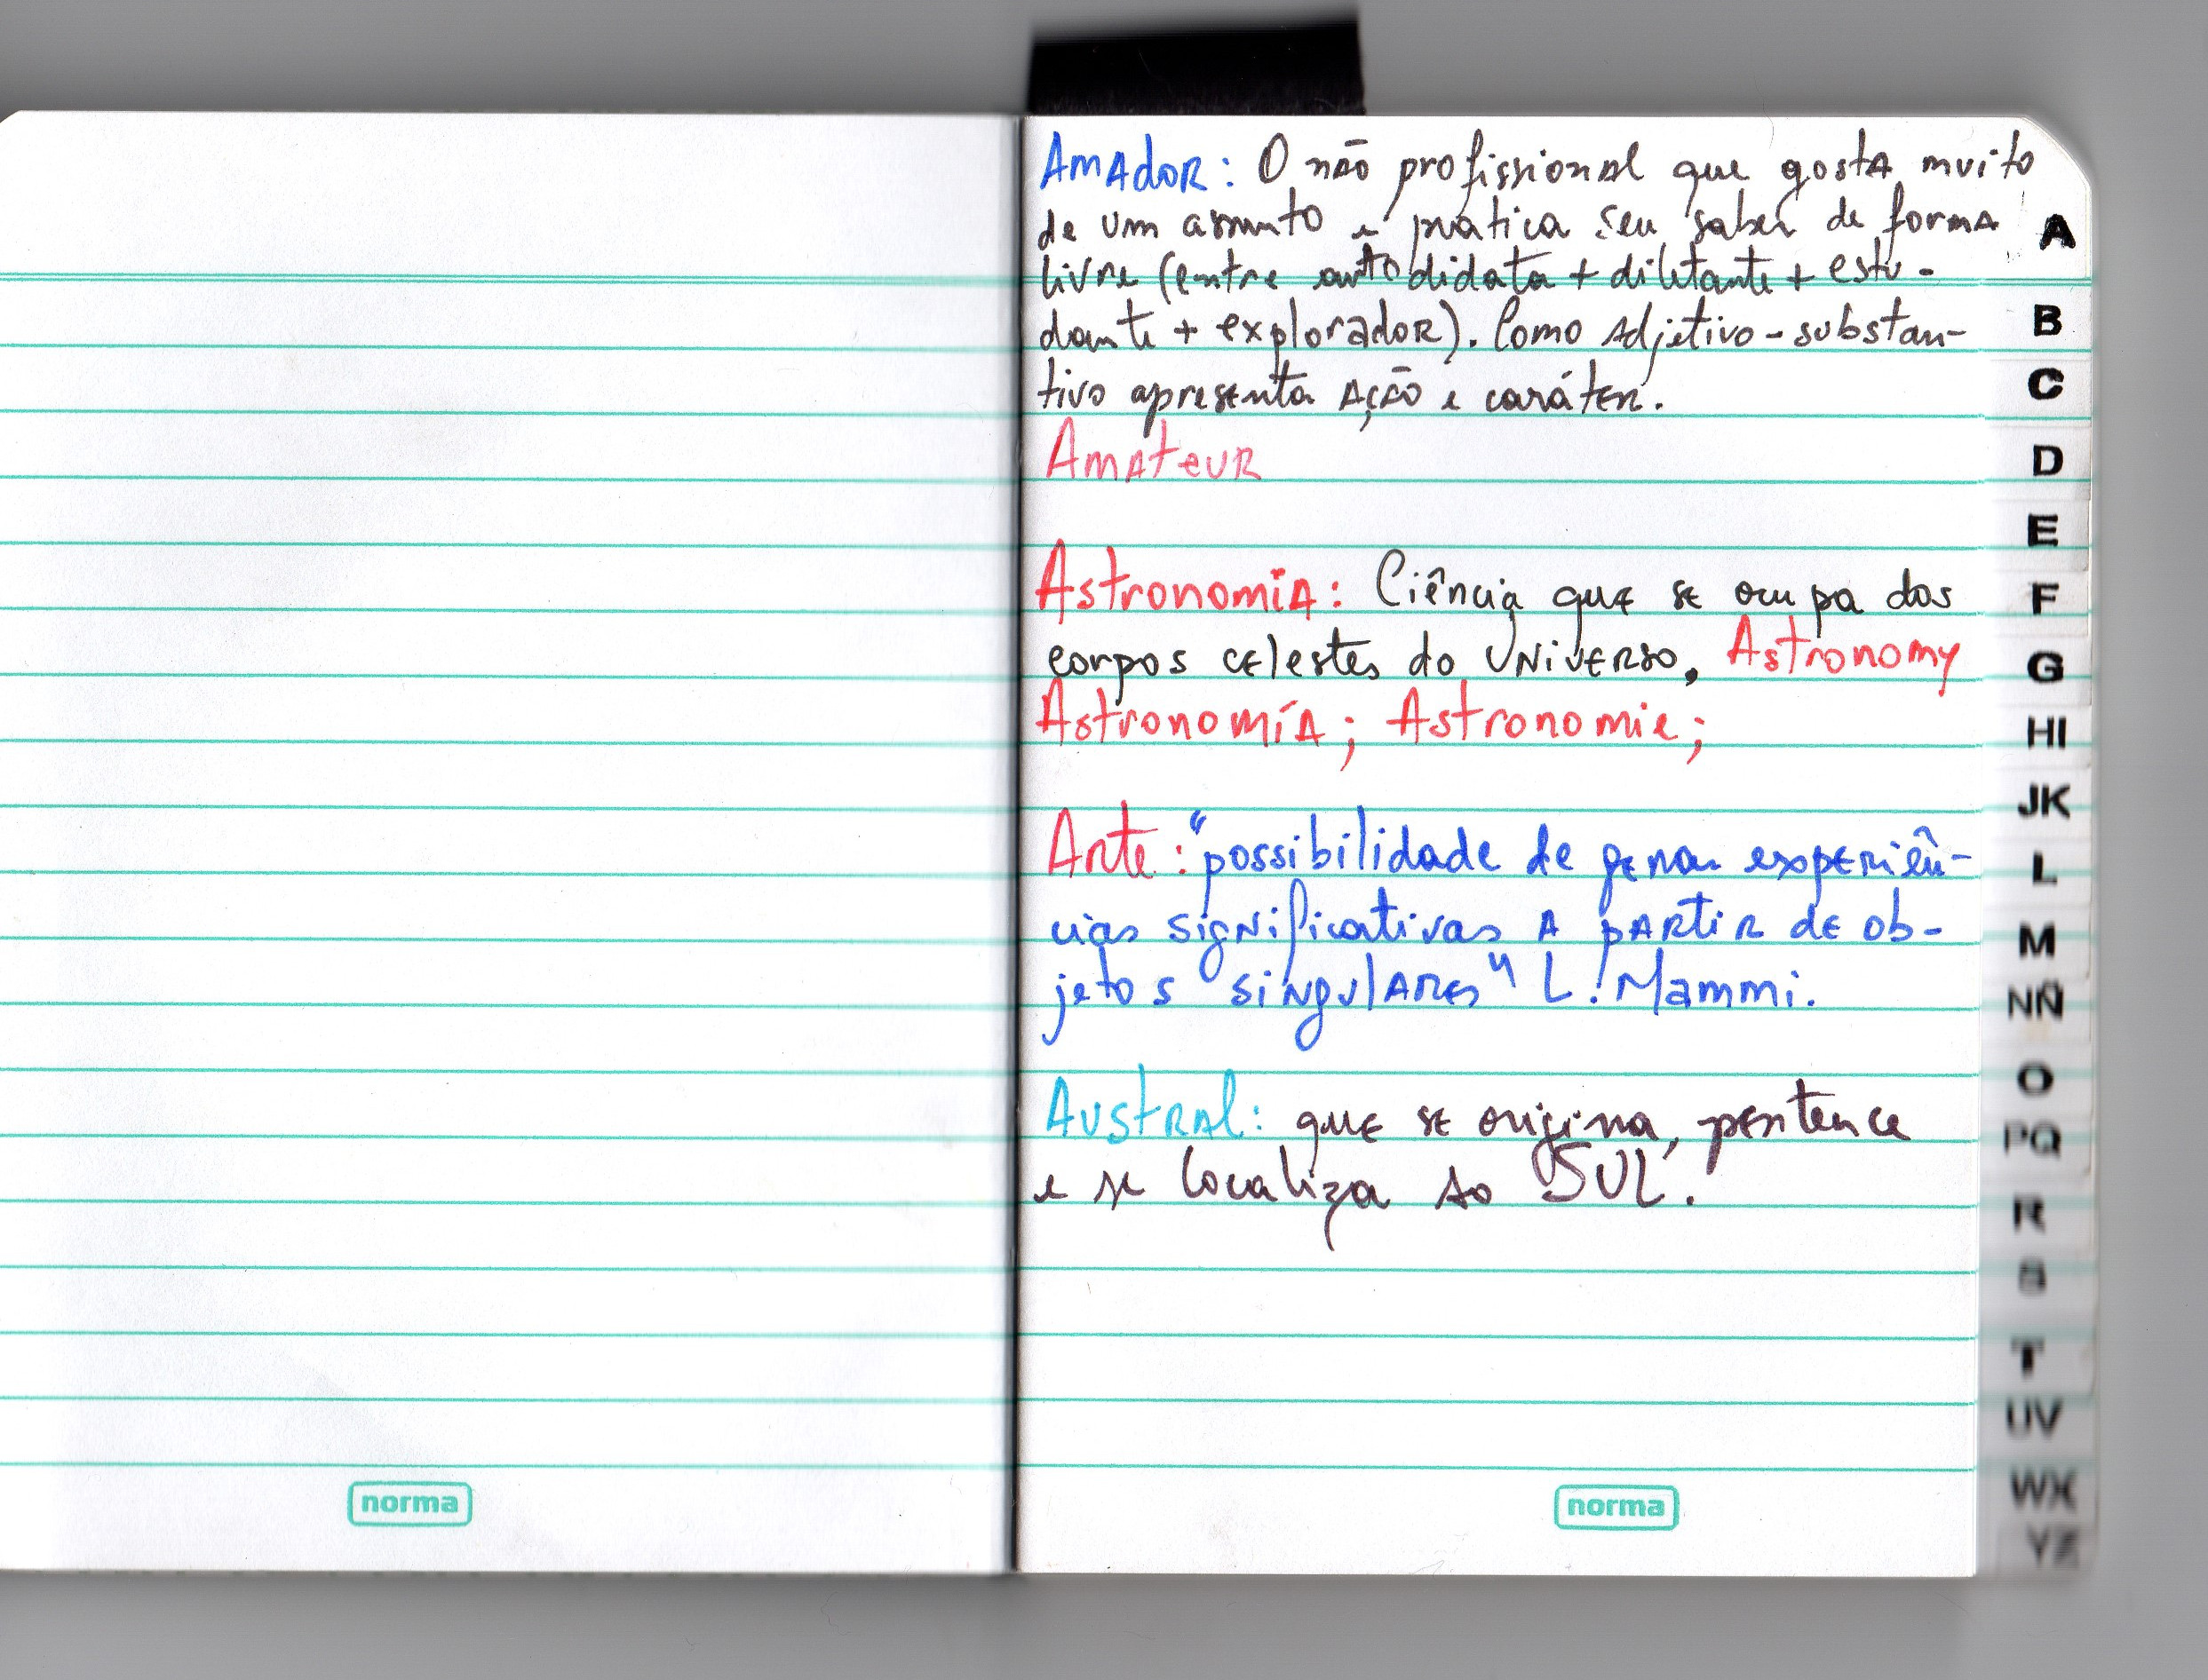 Amador: O não profissional que gosta muito
de um assunto e pratica seu saber de forma
livre (entre autodidata + diletante + estu-
dante + explorador). Como adjetivo-substan-
tivo apresenta ação e caráter.
Amateur
Astronomia: Ciência que se ocupa dos
corpos celestes do Universo. Astronomy
Astronomía; Astronomie;
Arte: "possibilidade de gerar experiên-
cias significativas a partir de ob-
jetos singulares" L. Mammi.
Austral: que se origina, pertence
e se localiza ao SUL.
norma
norma
A
B
C
D
E
F
G
HI
JK
L
M
NÑ
O
PQ
R
S
T
UV
WX
YZ